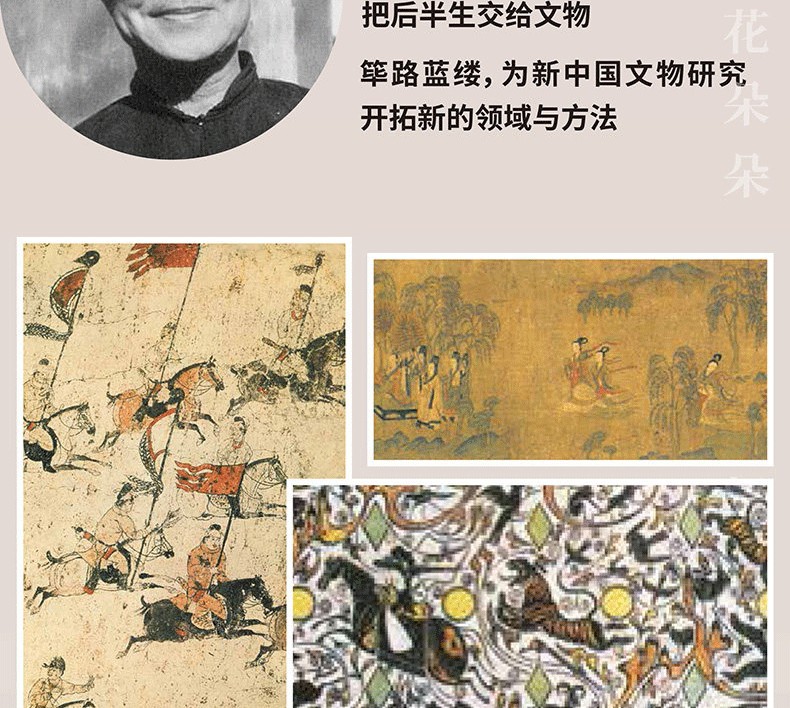 把后半生交给文物
筚路蓝缕，为新中国文物研究
开拓新的领域与方法
花朵朵